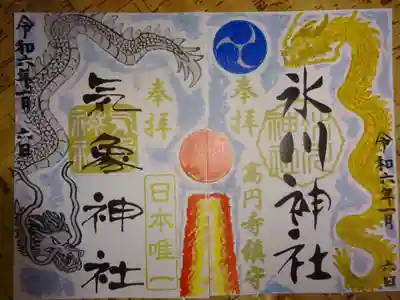 奉拝
氷川神社
高円寺鎮守
令和六年一月六日
奉拝
気象神社
日本唯一
令和六年一月六日